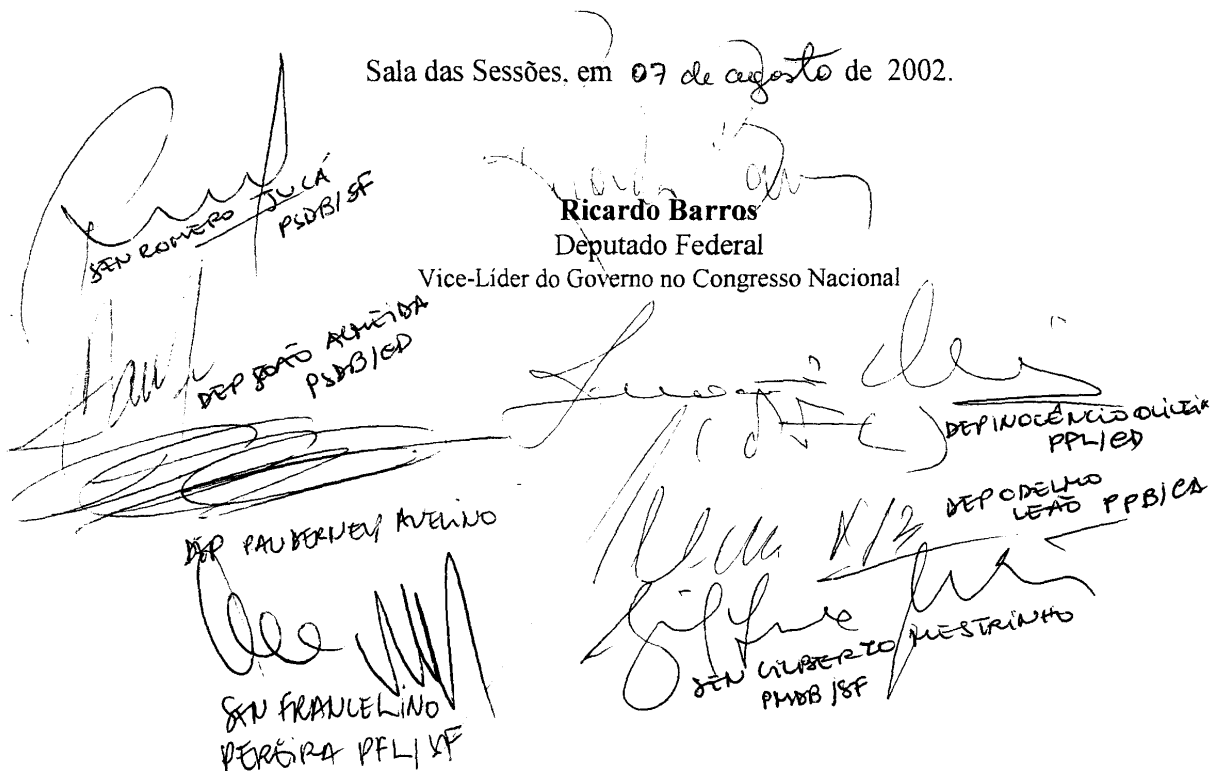 Sala das Sessões, em 07 de agosto de 2002.
Ricardo Barros
Deputado Federal
Vice-Líder do Governo no Congresso Nacional
SEN ROMERO JUCÁ
PSDB/SF
DEP JOÃO ALMEIDA
PSDB/CD
DEP INOCÊNCIO OLIVEIRA
PPL/CD
DEP ODELMO
LEÃO PPB/CD
DEP PAUDERNEY AVELINO
SEN GILBERTO MESTRINHO
PMDB/SF
SEN FRANCELINO
PEREIRA PFL/SF